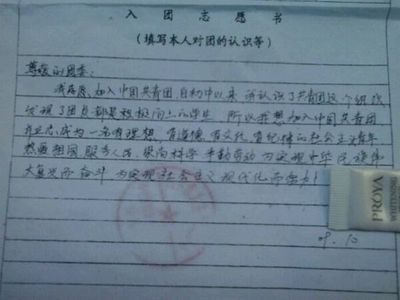 入团志愿书
(填写本人对团的认识等)
尊敬的团委:
我志愿加入中国共青团,自初中以来,我认识了共青团这个组织
发现了团员都是积极向上的学生,所以我想加入中国共青团
成为一名有理想、有道德、有文化、有纪律的社会主义青年
热爱祖国,服务人民,崇尚科学,辛勤劳动,为实现中华民族伟
大复兴而奋斗,为实现社会主义现代化而
PROYA